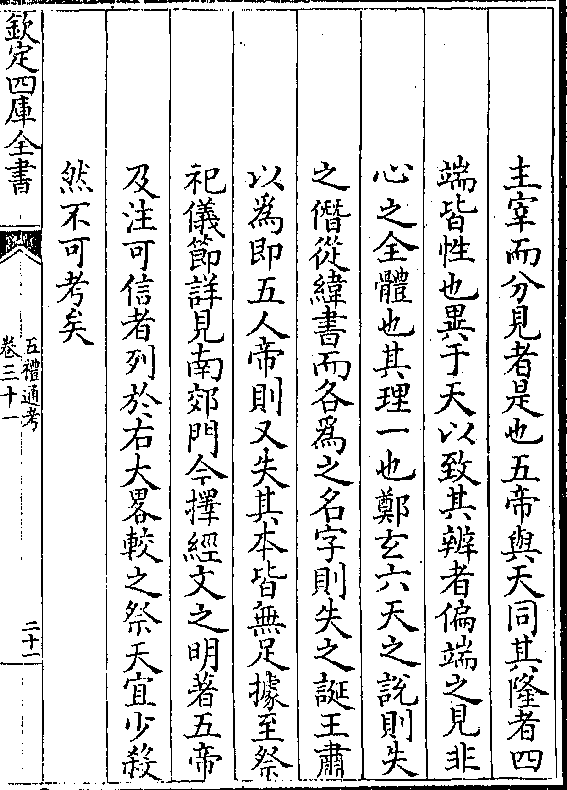 主宰而分見者是也五帝與天同其隆者四
端皆性也異于天以致其辨者偏端之見非
心之全體也其理一也鄭玄六天之說則失
之僭從緯書而各為之名字則失之誕王肅
以為即五人帝則又失其本皆無足據至祭
祀儀節詳見南郊門今擇經文之明著五帝
及注可信者列於右大畧較之祭天宜少殺
然不可考矣
欽定四庫全書
五禮通考
卷三十一
二十一